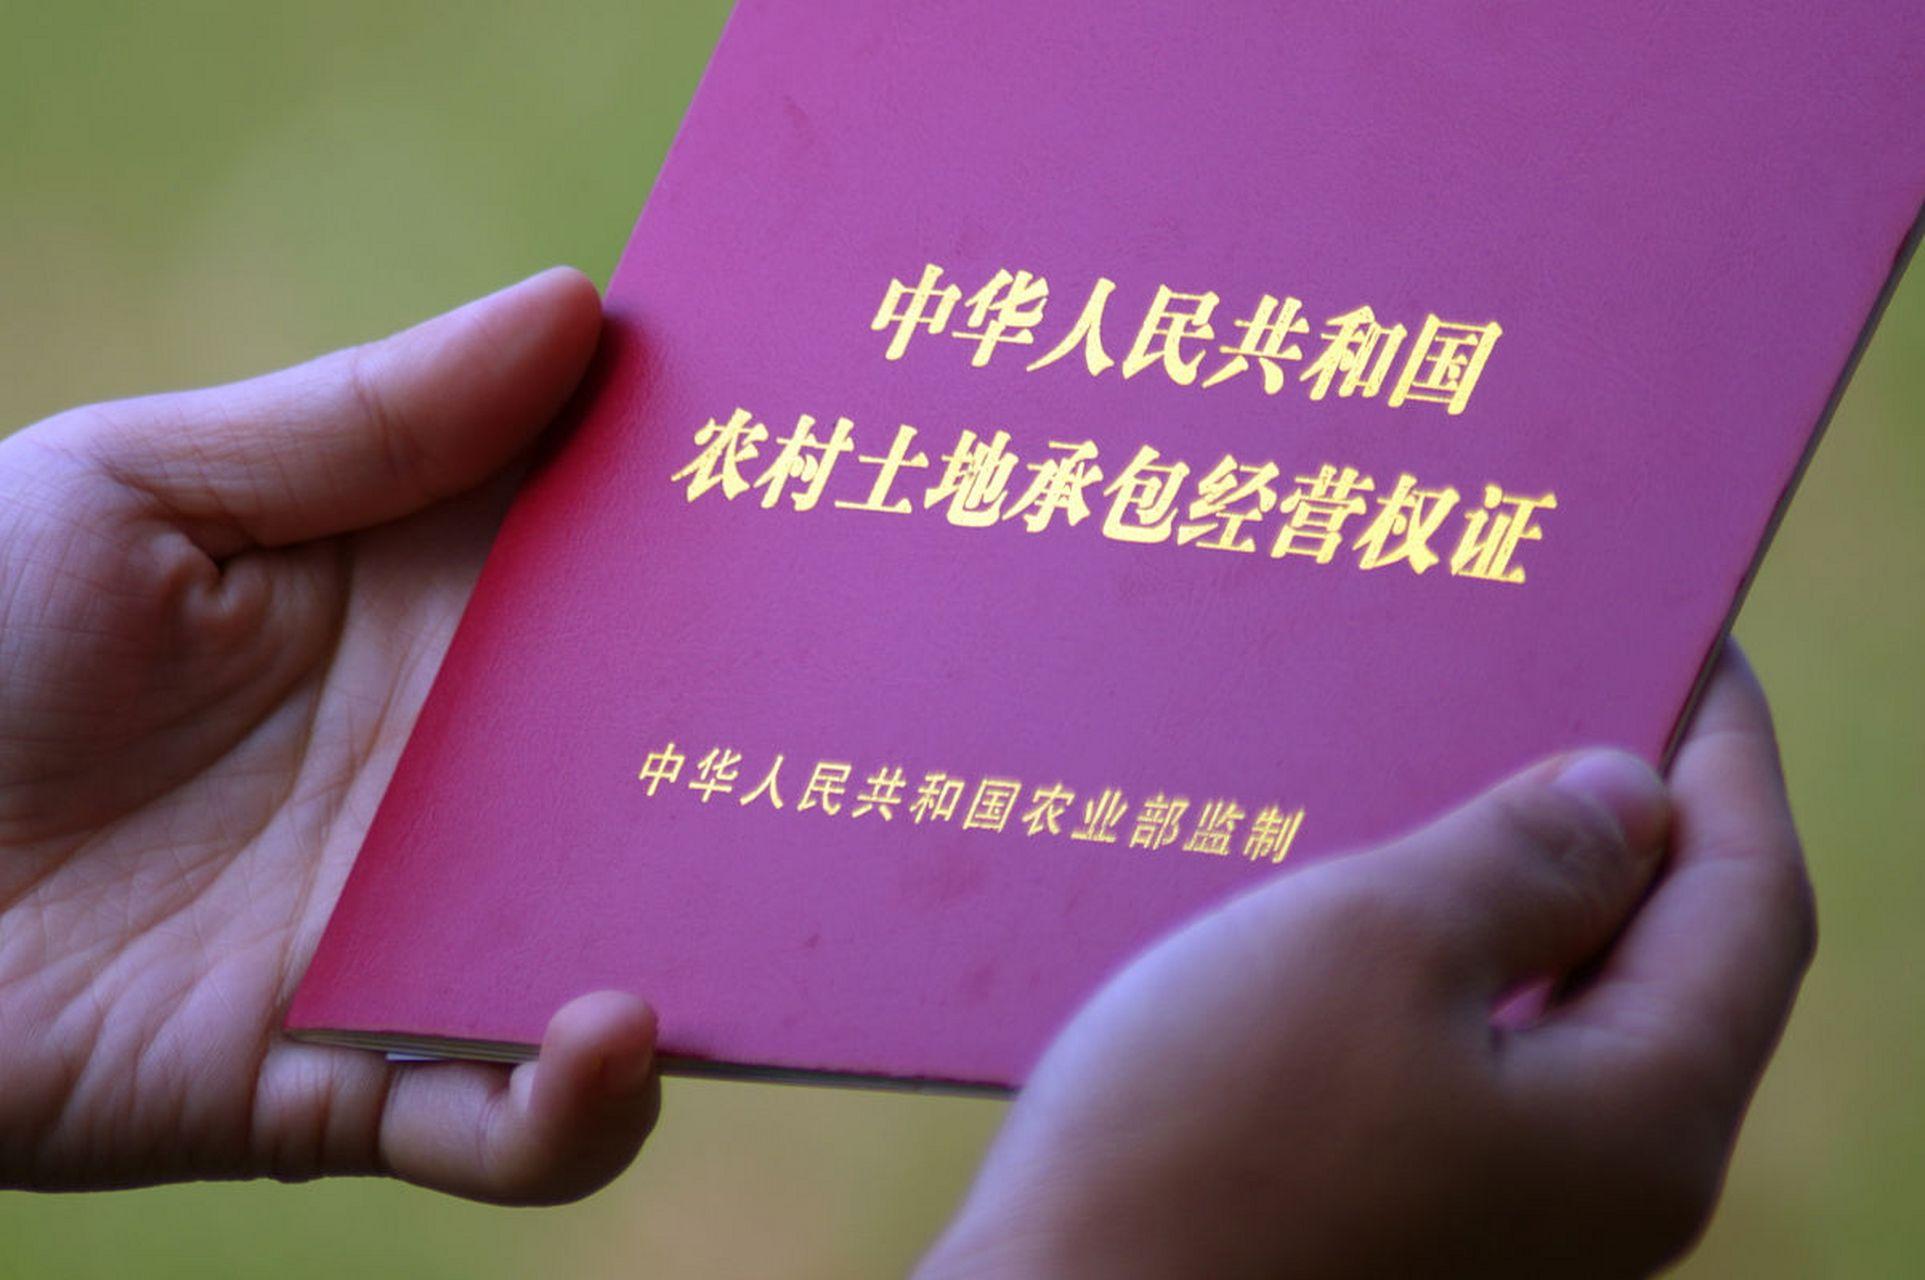 中华人民共和国
农村土地承包经营权证
中华人民共和国农业部监制